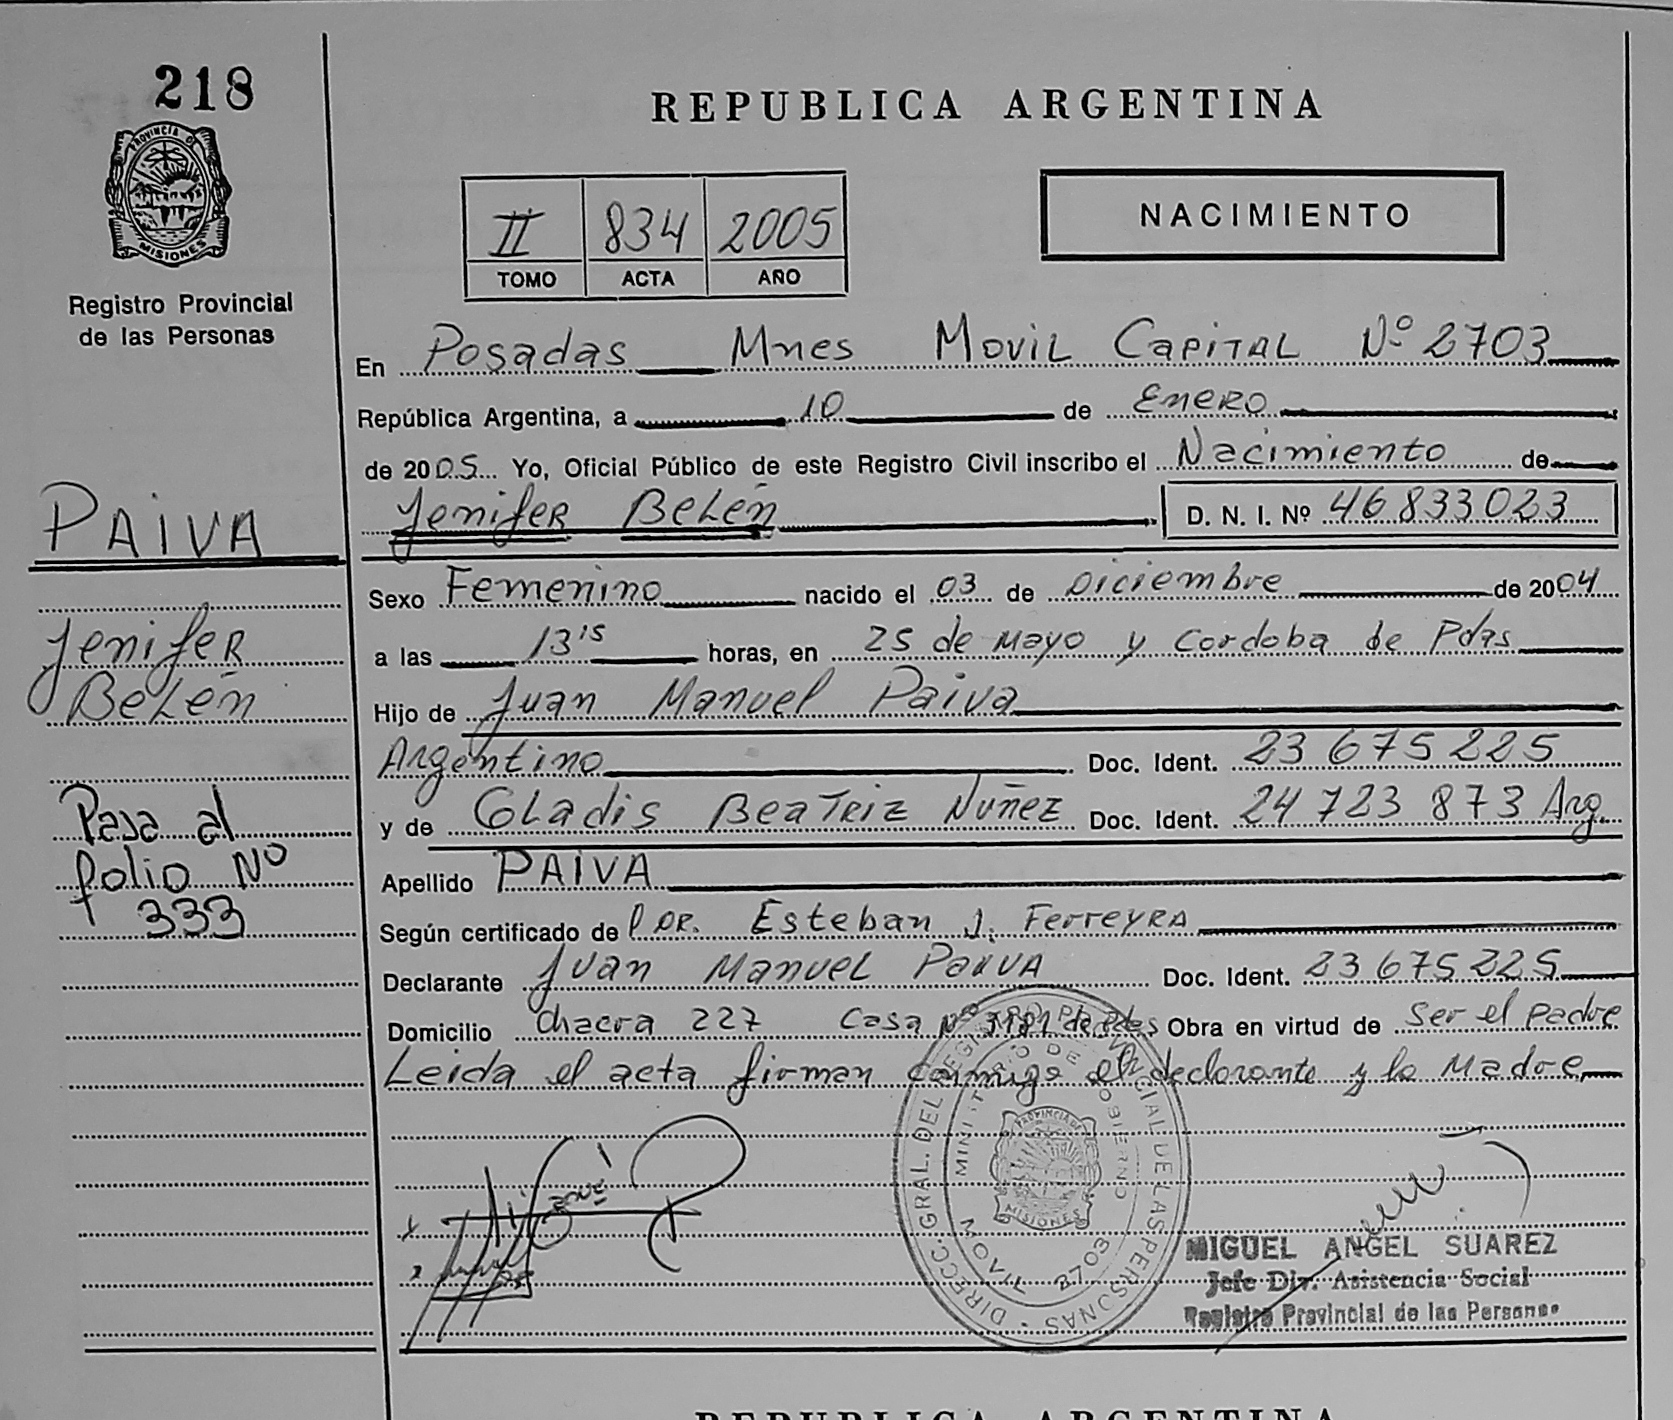 218
PROVINCIA DE
MISIONES
Registro Provincial
de las Personas
REPUBLICA ARGENTINA
II 834 2005
TOMO ACTA AÑO
NACIMIENTO
En Posadas Mnes Movil Capital Nº 2703
República Argentina, a 10 de Enero
de 2005 Yo, Oficial Público de este Registro Civil inscribo el Nacimiento de
Jenifer Belén D. N. I. Nº 46833023
PAIVA
Sexo Femenino nacido el 03 de Diciembre de 2004
Jenifer
Belén
a las 13 15 horas, en 25 de Mayo y Cordoba de Pdas
Hijo de Juan Manuel Paiva
Argentino Doc. Ident. 23 675 225
y de Gladis Beatriz Nuñez Doc. Ident. 24 723 873 Arg.
Pasa al
folio Nº
333
Apellido PAIVA
Según certificado de DR. Esteban J. Ferreyra
Declarante Juan Manuel Paiva Doc. Ident. 23 675 225
Domicilio Chacra 227 Casa Nº de Pdas Obra en virtud de Ser el padre
Leida el acta firman conmigo el declarante y la Madre
DIRECC. GRAL. DEL REGISTRO PROVINCIAL DE LAS PERSONAS
MINISTERIO DE GOBIERNO
MOVIL 2703
PROVINCIA DE
MISIONES
MIGUEL ANGEL SUAREZ
Jefe Div. Asistencia Social
Registro Provincial de las Personas
REPUBLICA ARGENTINA